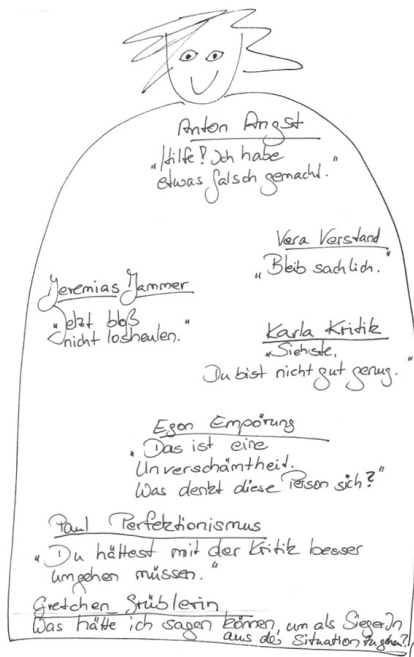 Anton Angst
„Hilfe! Ich habe
etwas falsch gemacht."
Vera Verstand
„Bleib sachlich."
Jeremias Jammer
„Jetzt bloß
nicht losheulen."
Karla Kritik
„Siehste,
Du bist nicht gut genug."
Egon Empörung
„Das ist eine
Unverschämtheit.
Was denkt diese Person sich?"
Paul Perfektionismus
„Du hättest mit der Kritik besser
umgehen müssen."
Gretchen Grüblerin
Was hätte ich sagen können, um als SiegerIn
aus der Situation zu gehen?"